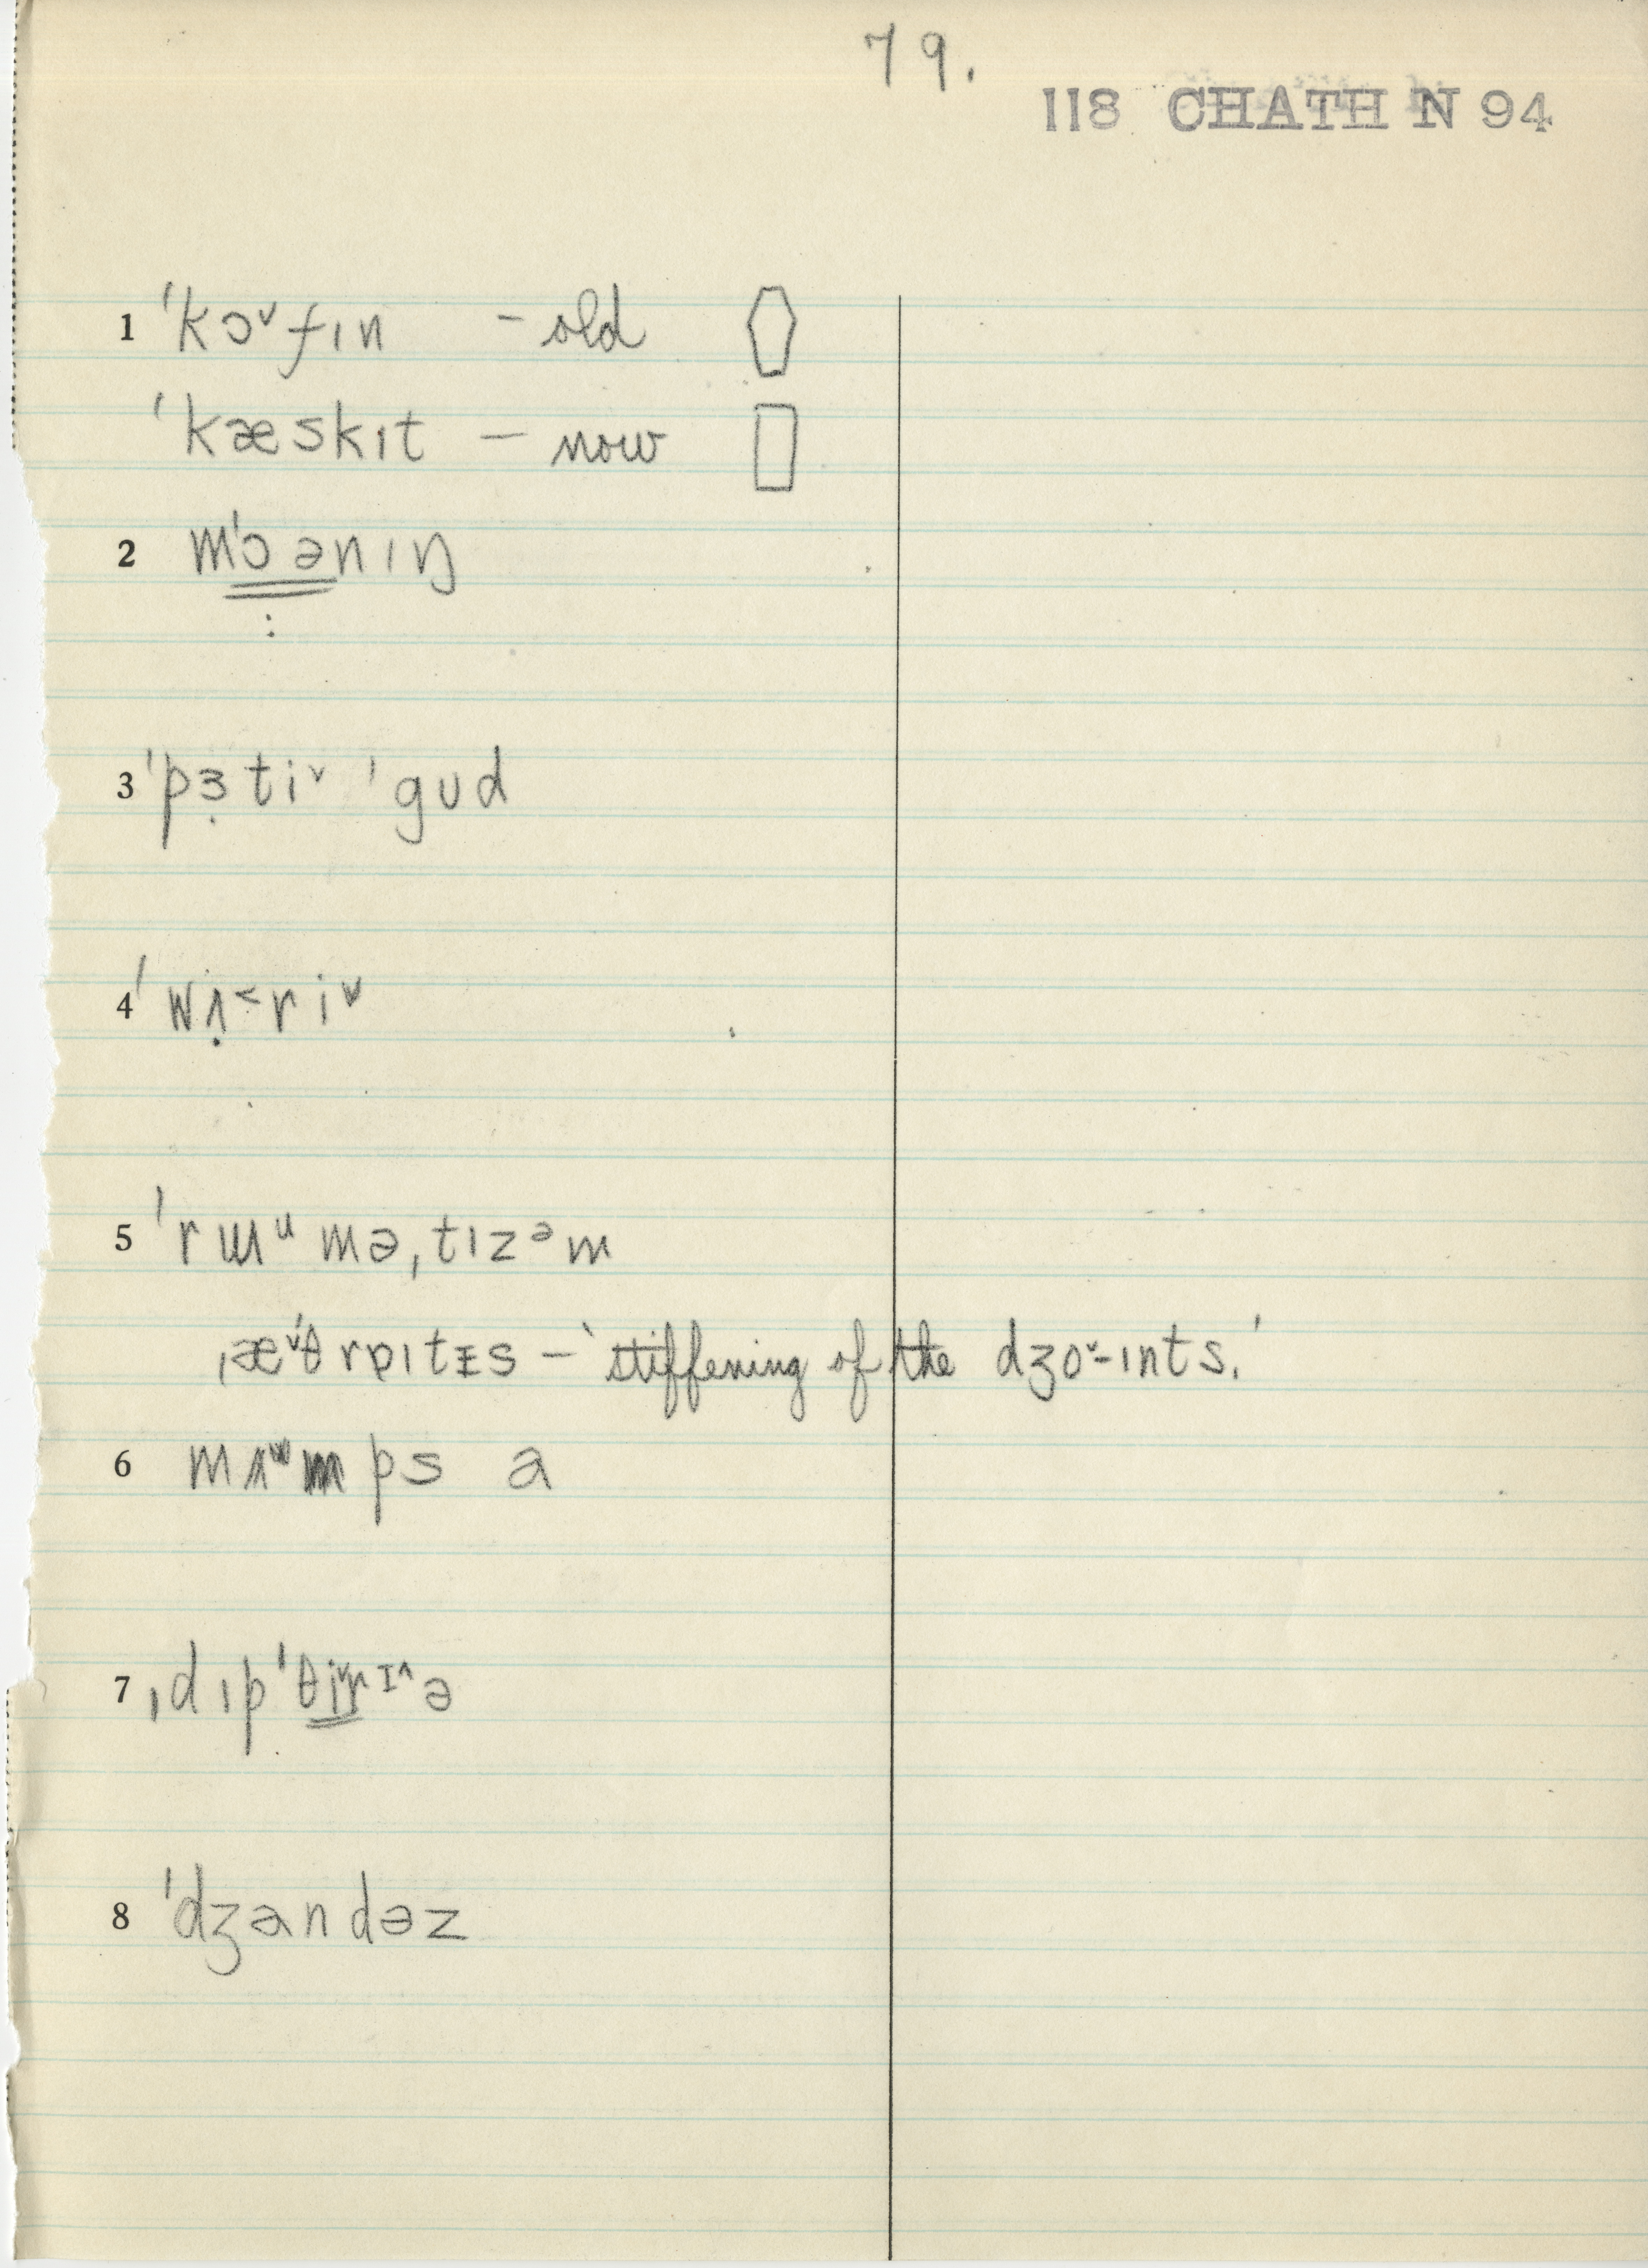 79.
118 CHATH N 94
1 ˈkɔ˅fɪn – old
ˈkæskɪt – now
2 mˈɔənɪŋ
:
3 ˈpɜ̣ti˅ ˈgʊd
4 ˈwʌ̣˂ri˅
5 ˈrɯᵘməˌtɪzᵊm
ˌæ˅ˈθrɒɪtᵻs – ‘stiffening of the dʒo˅-ɪnts.’
6 mʌmps a
7 ˌdɪpˈθi˅rɪ^ə
8 ˈdʒandəz